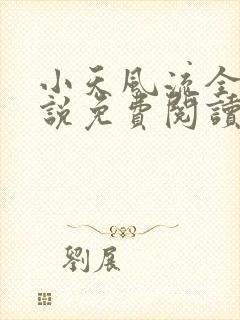 小天風流全
說免費閱讀
劉展